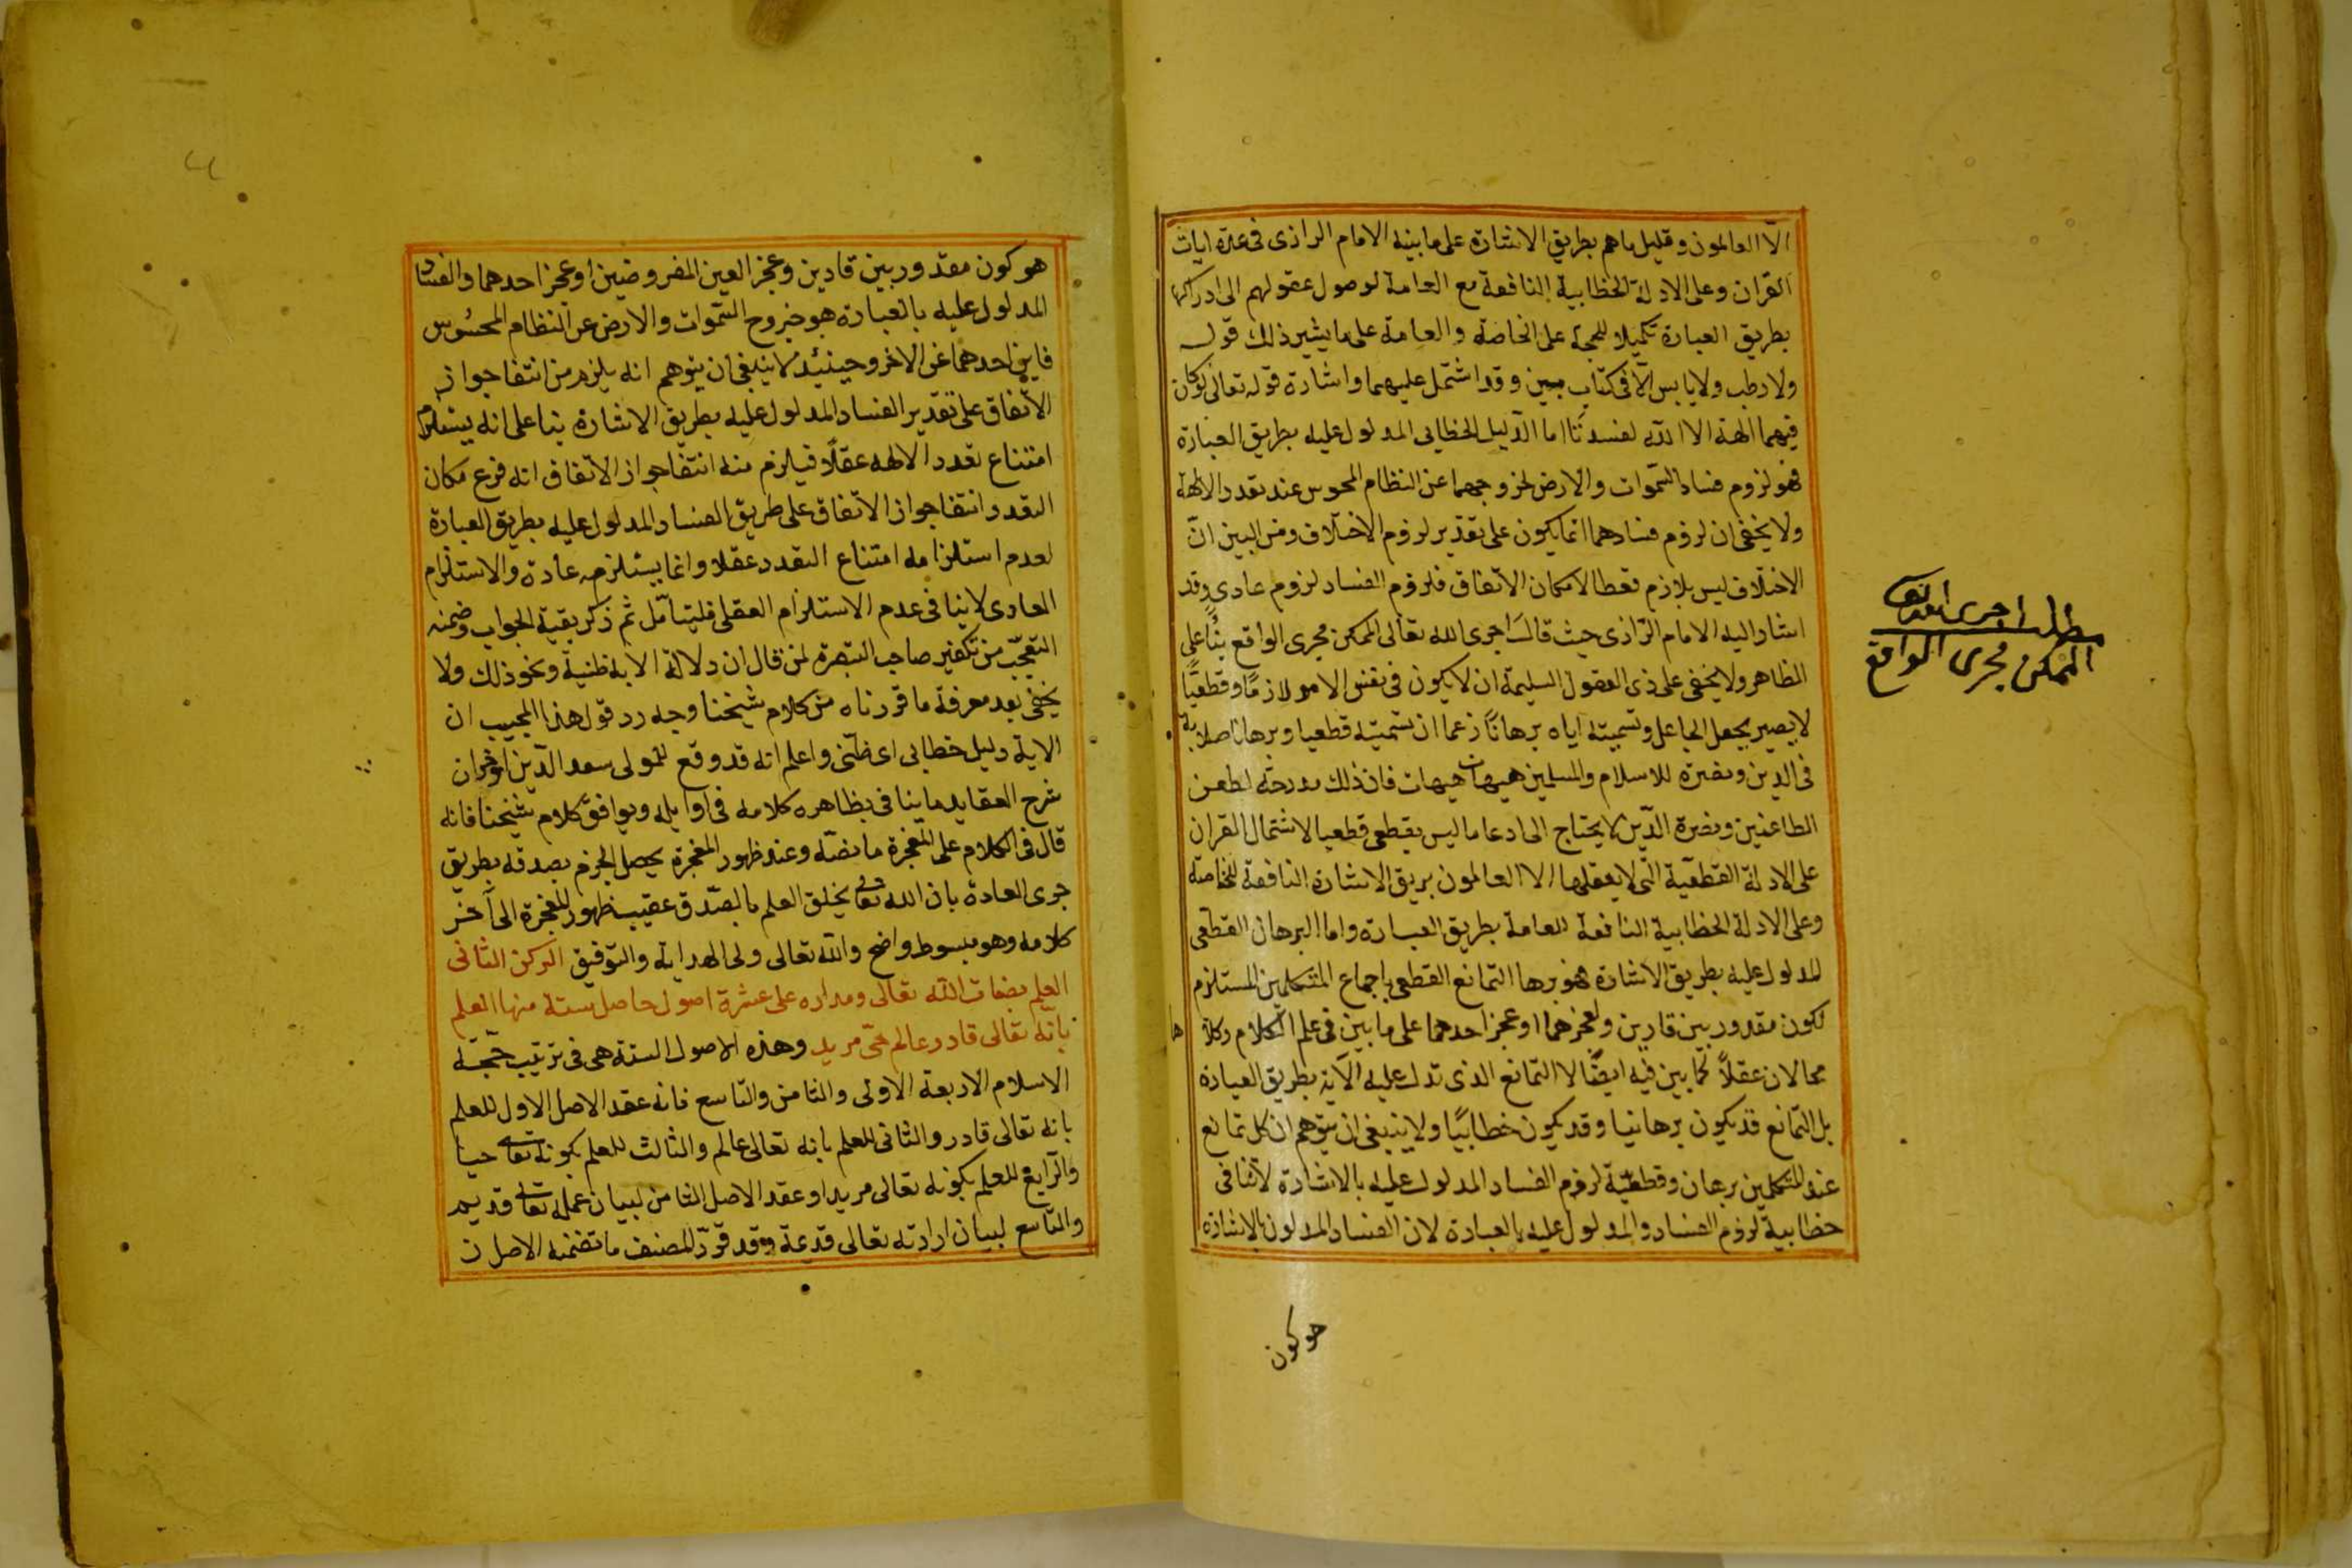 الا العالمون وقليل ماهم بطريق الاشارة على مابينه الامام الرازى فى عدة ايات
القران وعلى الادلة الخطابية النافعة مع العامة لوصول عقولهم الى ادراكها
بطريق العبارة تكميلا للحجة على الخاصة والعامة على ما يشير ذلك قوله
ولا رطب ولا يابس الا فى كتاب مبين وقد اشتمل عليهما واشارة قوله تعالى لوكان
فيهما الهة الا الله لفسدتا اما الدليل الخطابى المدلول عليه بطريق العبارة
فهو لزوم فساد السموات والارض لخروجهما عن النظام المحوس عند تعدد الالهة
ولا يخفى ان لزوم فسادهما انما يكون على تقدير لزوم الاختلاف ومن البين ان
الاختلاف ليس بلازم قطعا لامكان الاتفاق فلزوم الفساد لزوم عادى وقد
اشار اليه الامام الرازى حيث قال اجرى الله تعالى الممكن مجرى الواقع بنا على
الظاهر ولا يخفى على ذى العقول السليمة ان لا يكون فى نفس الامر لازما وقطعيا
لا يصير بجعل الجاعل وتسميته اياه برهانا زعما ان تسميته قطعيا وبرهانا صلابة
فى الدين ونصرة للاسلام والمسلمين هيهات هيهات فان ذلك مدرجة لطعن
الطاعنين ونصرة الدين لا يحتاج الى ادعا ماليس بقطعى قطعيا لاشتمال القران
على الادلة القطعية التى لا يعقلها الا العالمون بريق الاشارة النافعة للخاصة
وعلى الادلة الخطابية النافعة للعامة بطريق العبارة واما البرهان القطعى
المدلول عليه بطريق الاشارة فهو برها التمانع القطعى باجماع المتكلمين المستلزم
لكون مقدور بين قادرين ولعجزهما او عجز احدهما على ما بين فى علم الكلام وكلا
هما
محالان عقلا كما بين فيه ايضا لا التمانع الذى تدل عليه الاية بطريق العبارة
بل التمانع قد يكون برهانيا وقد يكون خطابيا ولا ينبغى ان يتوهم ان كل تمانع
عند المتكلمين برهان وقطعية لزوم الفساد المدلول عليه بالاشارة لا تنافى
خطابية لزوم الفساد والمدلول عليه بالعبارة لان الفساد المدلون بالاشارة
هو كون
مطلب اجرى الله تعالى
الممكن مجرى الواقع
هو كون مقدور بين قادرين وعجز العين المفروضين او عجز احدهما والفساد
المدلول عليه بالعبارة هو خروج السموات والارض عن النظام المحسوس
فاين احدهما عن الاخر وحينئذ لا ينبغى ان يتوهم انه يلزم من انتفا جواز
الاتفاق على تقدير الفساد المدلول عليه بطريق الاشارة بنا على انه يستلزم
امتناع تعدد الالهه عقلا فيلزم منه انتفا جواز الاتفاق انه فرع مكان
التعدد وانتفا جواز الاتفاق على طريق الفساد المدلول عليه بطريق العبارة
لعدم استلزامه امتناع التعدد عقلا وانما يستلزمه عادة والاستلزام
العادى لا ينافى عدم الاستلزام العقلى فليتامل ثم ذكر بقية الجواب وضمنه
التعجب من تكفير صاحب التبصرة لمن قال ان دلالة الاية ظنية ونحو ذلك ولا
يخفى بعد معرفة ما قررناه من كلام شيخنا وجه رد قول هذا المجيب ان
الاية دليل خطابى اى ظنى واعلم انه قد وقع للمولى سعد الدين اواخر
شرح العقايد ما ينافى بظاهره كلامه فى اوايله ويوافق كلام شيخنا فانه
قال فى الكلام على المعجزة ما نصه وعند ظهور المعجزة يحصل الجزم بصدقه بطريق
جرى العادة بان الله تعالى يخلق العلم بالصدق عقيب ظهور المعجزة الى آخر
كلامه وهو مبسوط واضح والله تعالى ولى الهداية والتوفيق الركن الثانى
العلم بصفات الله تعالى ومداره على عشرة اصول حاصل ستة منها العلم
بانه تعالى قادر عالم حى مريد وهذه الاصول الستة هى فى ترتيب حجة
الاسلام الاربعة الاولى والثامن والتاسع فانه عقد الاصل الاول للعلم
بانه تعالى قادر والثانى للعلم بانه تعالى عالم والثالث للعلم بكونه تعالى حيا
والرابع للعلم بكونه تعالى مريدا وعقد الاصل الثامن لبيان علمه تعالى قديم
والتاسع لبيان ارادته تعالى قديمة وقد قرر المصنف ما تضمنه الاصلان